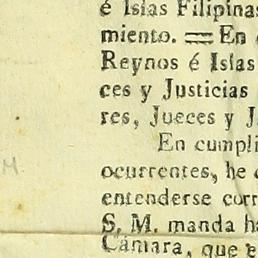 é Islas Filipinas
miento. = En
Reynos é Islas
ces y Justicias
res, Jueces y J
En cumpli
ocurrentes, he
entenderse corr
S. M. manda ha
Cámara, que e
M